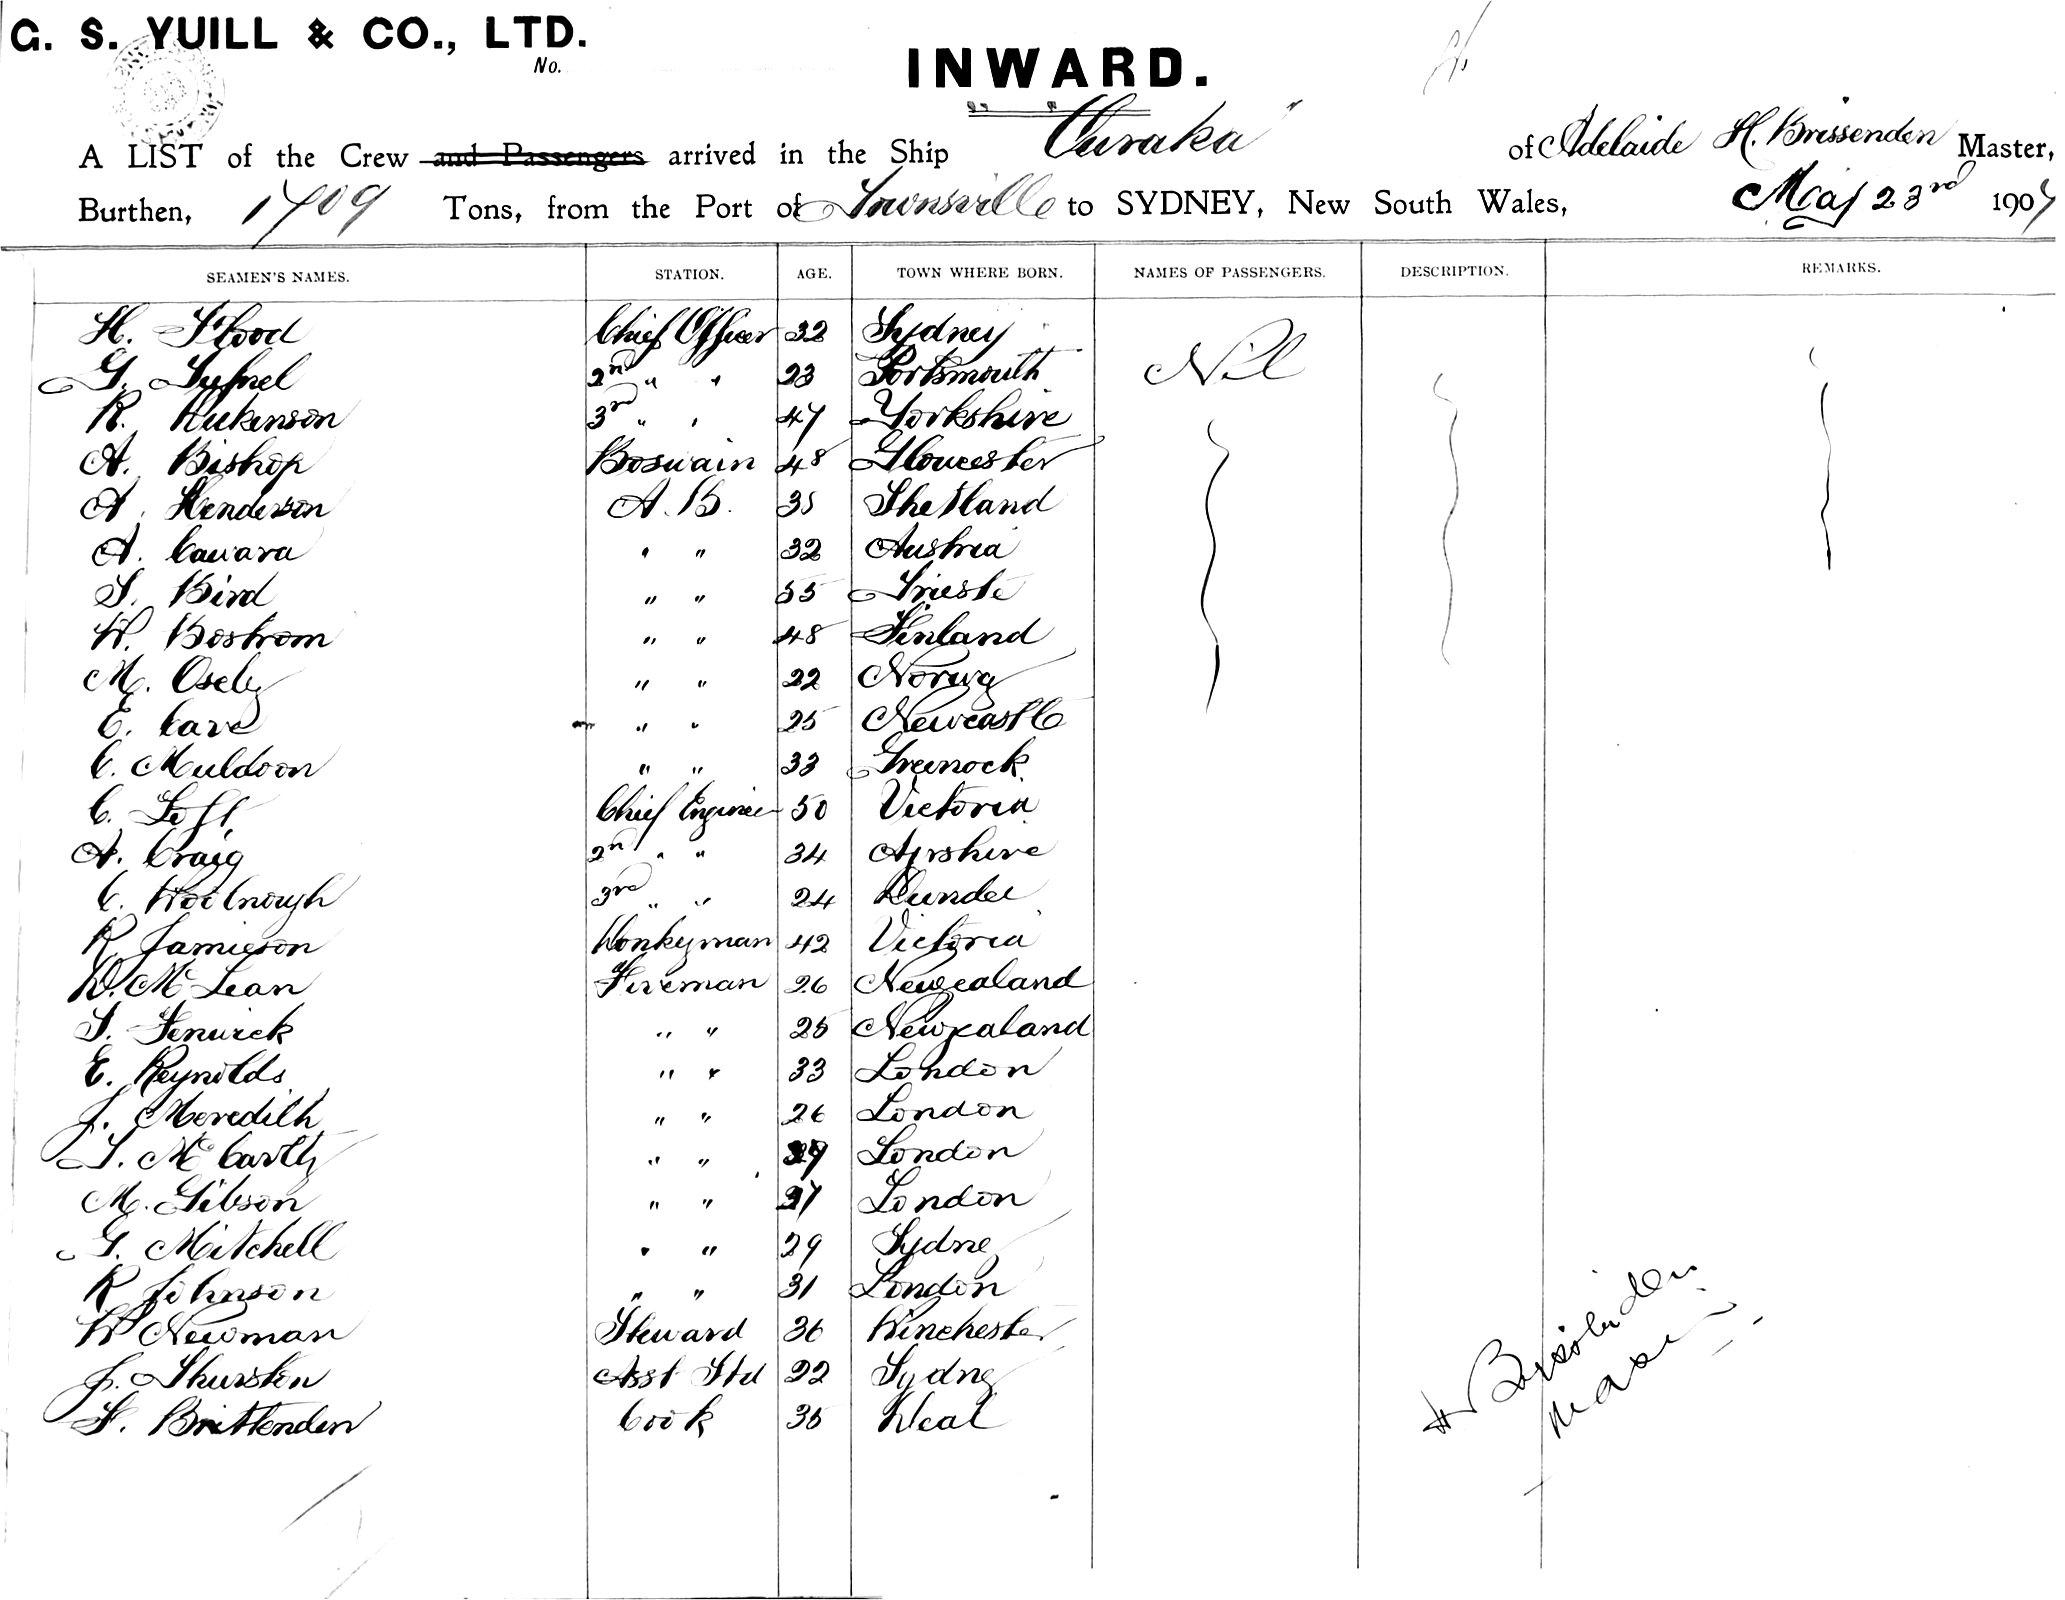 G. S. YUILL & CO., LTD.
No.
INWARD.
A LIST of the Crew and Passengers arrived in the Ship "Curaka" of Adelaide H. Brissenden Master,
Burthen, 1709 Tons, from the Port of Townsville to SYDNEY, New South Wales, May 23rd 1907
SEAMEN'S NAMES. STATION. AGE. TOWN WHERE BORN. NAMES OF PASSENGERS. DESCRIPTION. REMARKS.
H. Flood Chief Officer 32 Sydney Nil
G. 2nd " " 23 Portsmouth
R. Dickenson 3rd " " 47 Yorkshire
A. Bishop Boswain 48 Gloucester
A. Henderson A.B. 35 Shetland
A. Cavara " " 32 Austria
S. Bird " " 55 Trieste
W. Bostrom " " 48 Finland
M. Osely " " 22 Norwy
E. Cave " " 25 Newcastle
C. Muldoon " " 33 Greenock
C. Chief Engineer 50 Victoria
A. Craig 2nd " " 34 Ayrshire
C. Woolnough 3rd " " 24 Dundee
R. Jamieson Donkeyman 42 Victoria
D. Mc Lean Fireman 26 Newzealand
S. Fenwick " " 25 Newzealand
E. Reynolds " " 33 London
J. Meredith " " 26 London
T. Mc Carthy " " London
M. Gibson " " 27 London
G. Mitchell " " 29 Sydney
R Johnson " " 31 London
W Newman Steward 36 Winchester
J. Thurston Asst Std 22 Sydney
F. Brittenden Cook 35 Deal
H Brissenden
Master